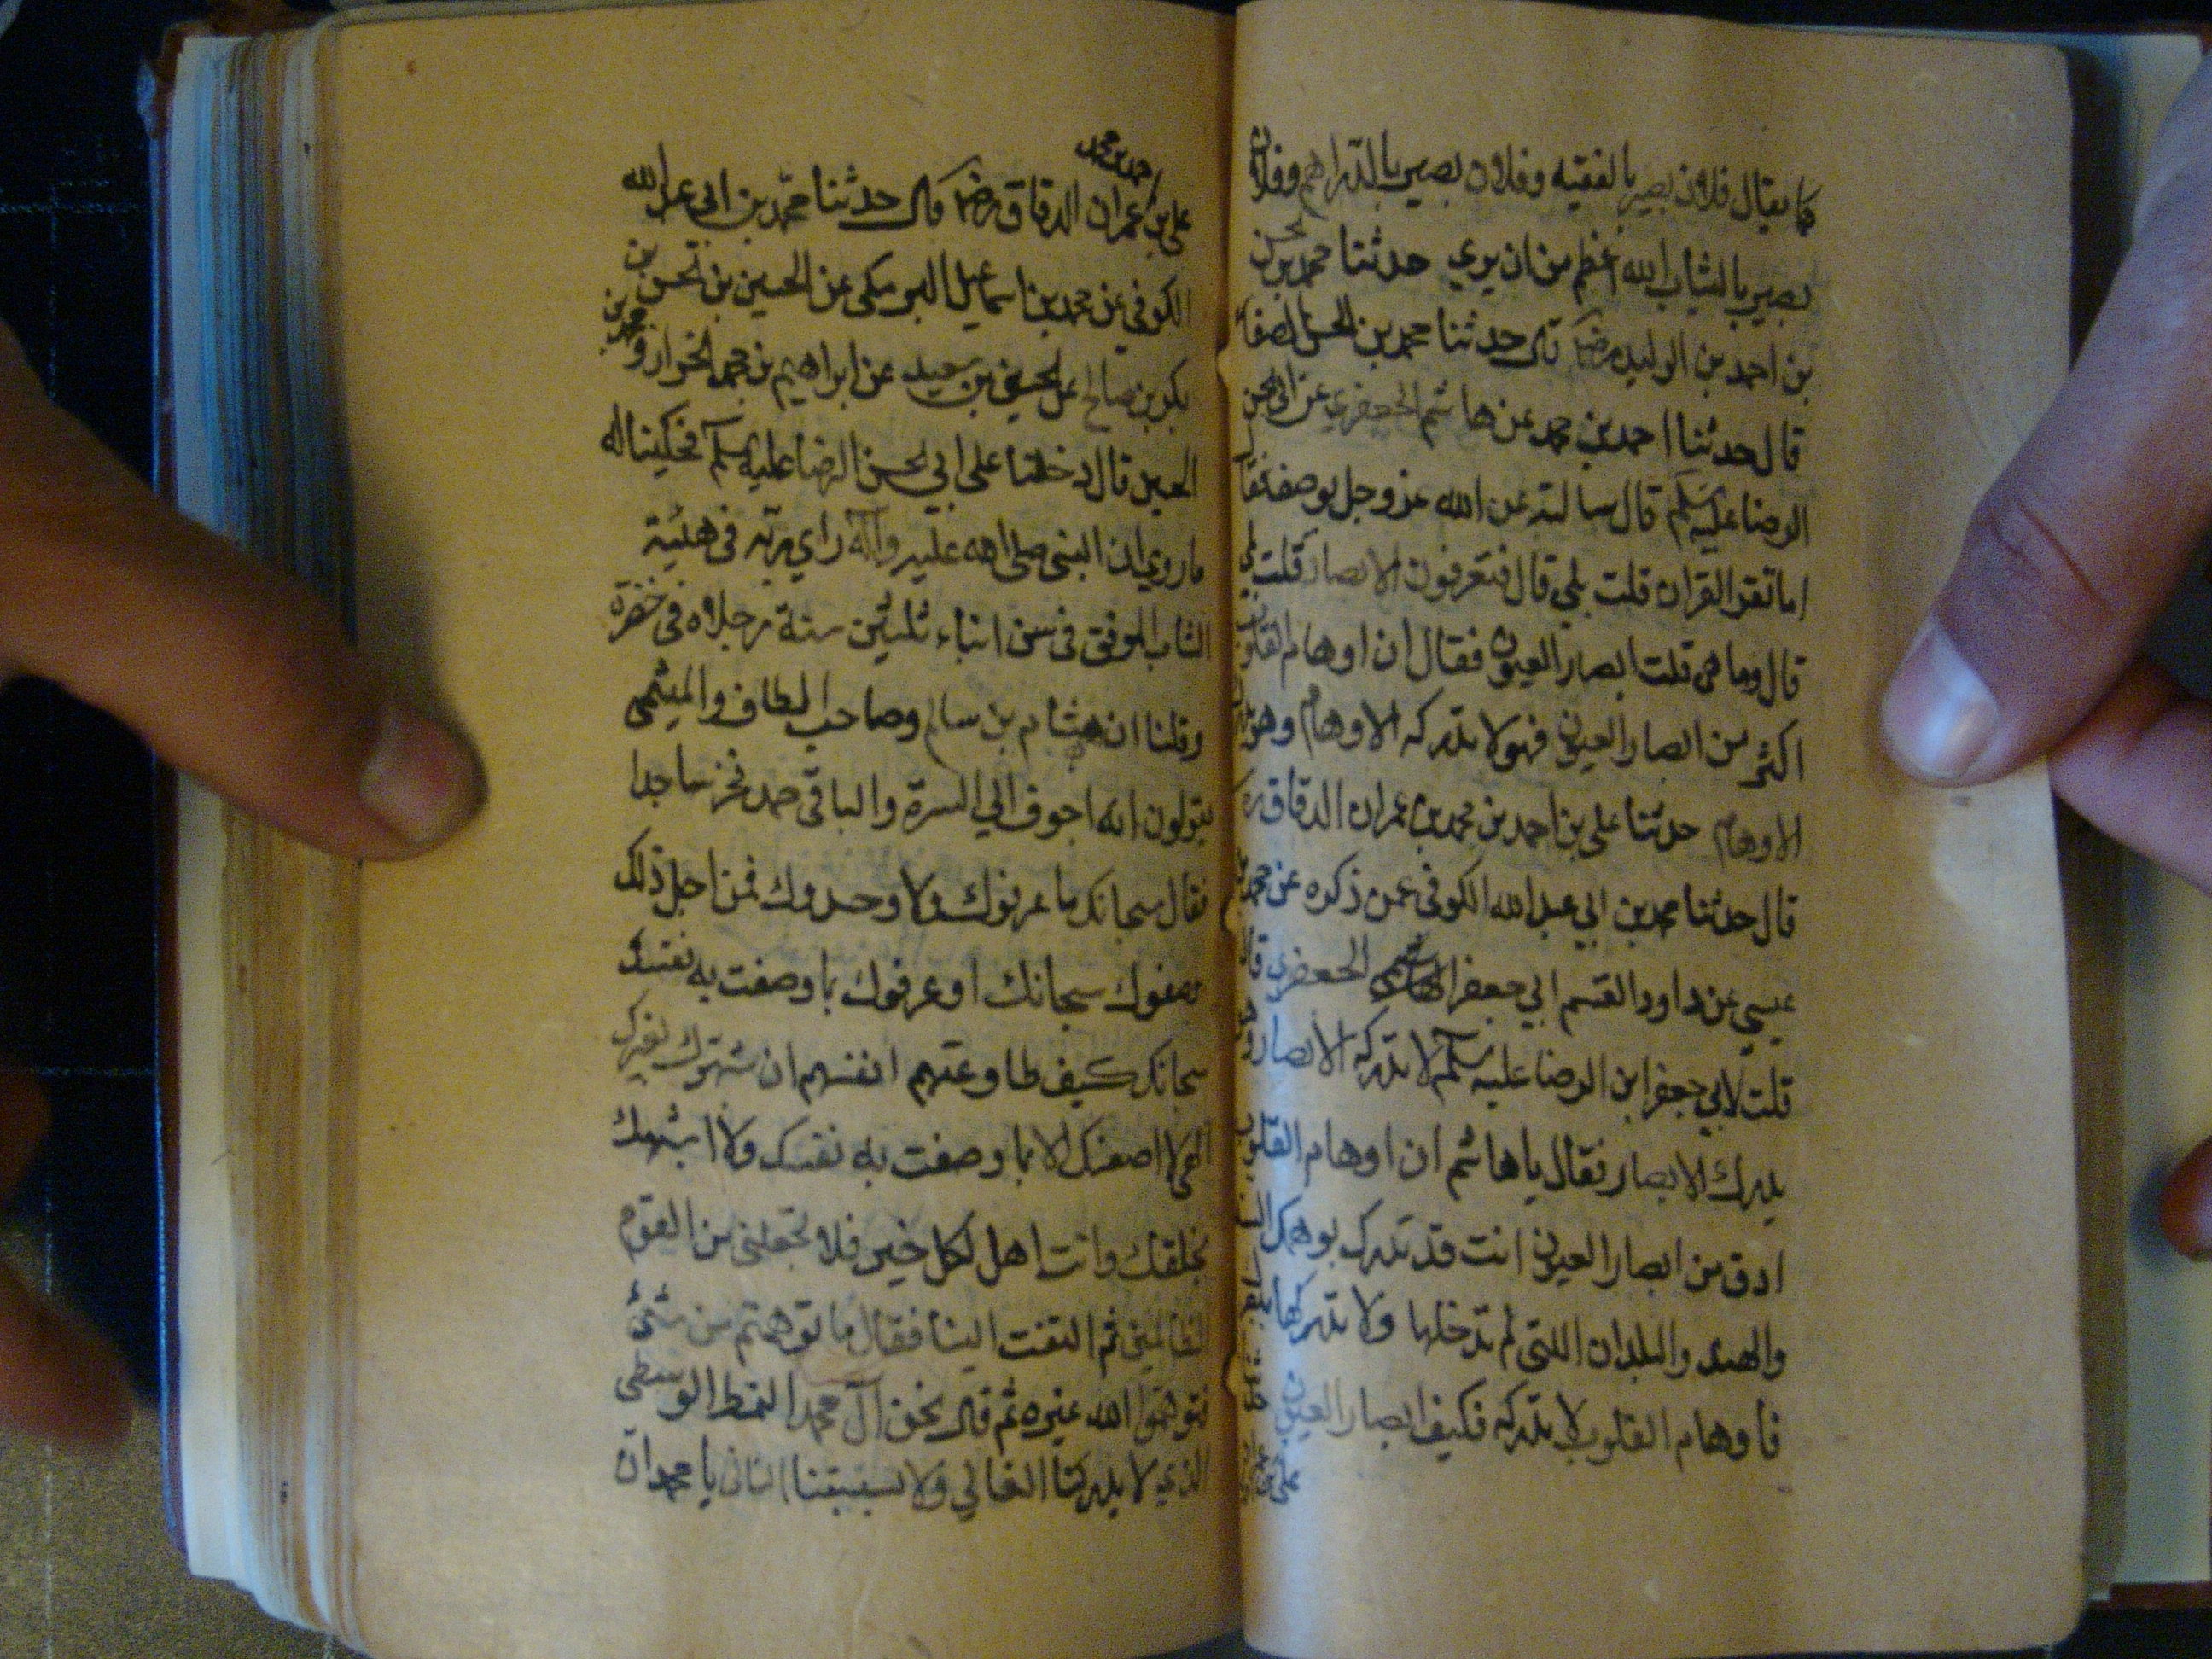 كما يقال فلان بصير بالفقيه وفلان بصير بالدراهم وفلان
بصير بالثياب الله اعظم من ان يري حدثنا محمد بن الحسن
بن احمد بن الوليد رضه قال حدثنا محمد بن الحسن الصفار
قال حدثنا احمد بن محمد عن هاشم الجعفري عن ابي الحسن
الرضا عليه السلم قال سالته عن الله عز وجل يوصف فقال
اما تقرؤ القران قلت بلي قال فتعرفون الابصار قلت بلي
قال وما هي قلت ابصار العيون فقال ان اوهام القلوب
اكثر من ابصار العيون فهو لا تدركه الاوهام وهو يدرك
الاوهام حدثنا علي بن احمد بن محمد بن عمران الدقاق ره
قال حدثنا محمد بن ابي عبد الله الكوفي عمن ذكره عن محمد بن
عيسي عن داود القسم ابي جعفر الهاشم الجعفري قال
قلت لابي جعفر ابن الرضا عليه السلم لا تدركه الابصار وهو
يدرك الابصار فقال يا هاشم ان اوهام القلوب
ادق من ابصار العيون انت قد تدرك بوهمك السند
والهند والبلدان اللتي لم تدخلها ولا تدركها ببصرك
فاوهام القلوب لا تدركه فكيف ابصار العيون حدثنا
علي بن احمد بن محمد
علي بن عمران الدقاق رضه قال حدثنا محمد بن ابي عبد الله
الكوفي عن محمد بن اسماعيل البرمكي عن الحسين بن الحسن بن
بكر بن صالح عن الحسين بن سعيد عن ابراهيم بن محمد الخزار و محمد بن
الحسين قال دخلنا علي ابي الحسن الرضا عليه السلم فحكينا له
ما روي ان النبي صلي الله عليه وآله راي ربه في هيئة
الشاب الموفق في سن ابناء ثلثين سنة رجلاه في خضرة
وقلنا ان هشام بن سالم وصاحب الطاف والميثمي
يقولون انه اجوف الي السرة والباقي صمد فخر ساجدا
فقال سبحانك ما عرفوك ولا وحدوك فمن اجل ذلك
وصفوك سبحانك او عرفوك بما وصفت به نفسك
سبحانك كيف طاوعتهم انفسهم ان شبهوك بغيرك
الهي لا اصفك الا بما وصفت به نفسك ولا اشبهك
بخلقك وانت اهل لكل خير فلا تجعلني من القوم
الظالمين ثم التفت الينا فقال ما توهمتم من شئ
فتوهموا الله غيره ثم قال نحن آل محمد النمط الوسطي
الذي لا يدركنا الغالي ولا يسبقنا التالي يا محمد ان